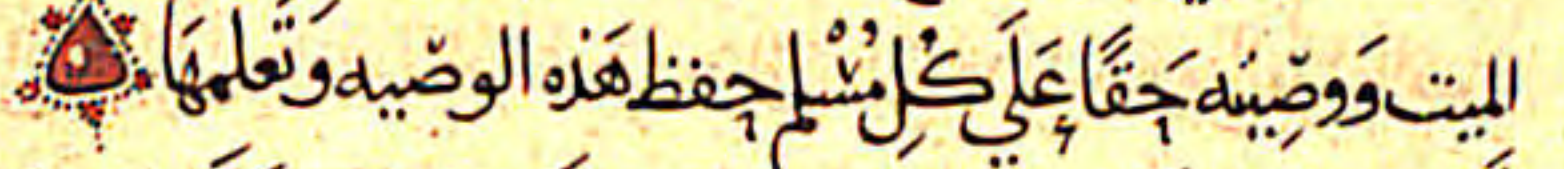 الميت وَوصِّيته حَقًا عَلَي كُلِ مُسْلم حفظ هَذه الوصّيه وَتَعلمهَا